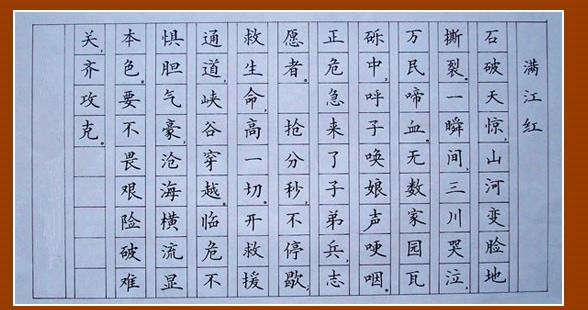 满江红
石破天惊,山河变脸地
撕裂。一瞬间,三川哭泣,
万民啼血。无数家园瓦
砾中,呼子唤娘声哽咽。
正危急来了子弟兵,志
愿者。 抢分秒,不停歇,
救生命,高一切。开救援
通道,峡谷穿越。临危不
惧胆气豪,沧海横流显
本色。要不畏艰险破难
关,齐攻克。